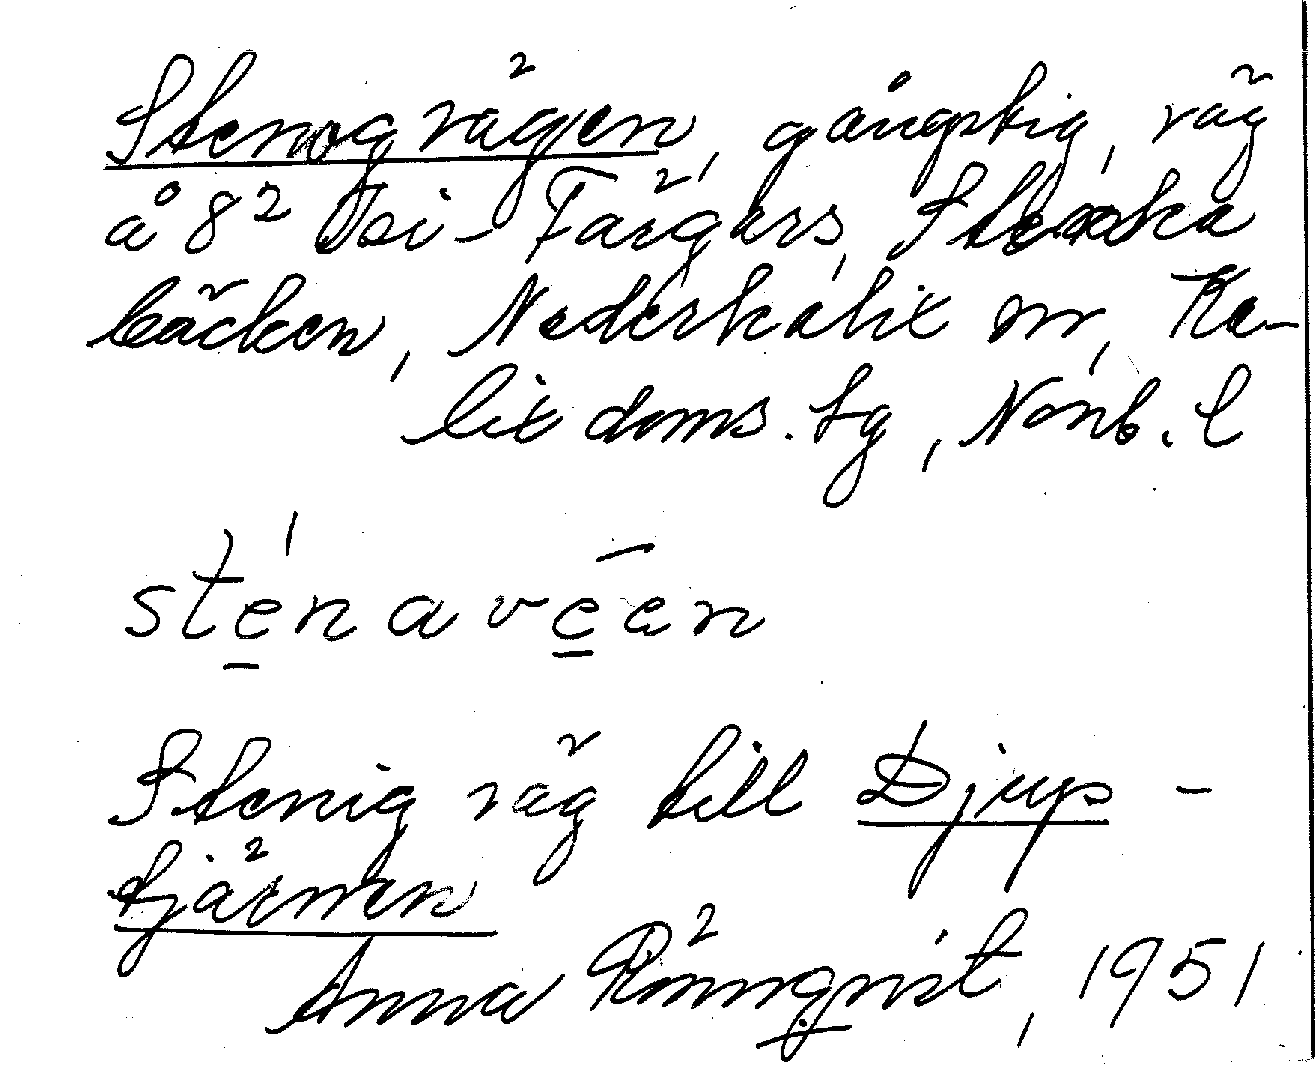 Stenogvägen, gångstig, väg
å 8² Tsi-Färgars, Stenska
bäcken, Nederkalix sn, Ka-
lix doms. tg, Norrb. l
sténavēen
Stenig väg till Djup-
tjärnen
Anna Rönnqvist, 1951